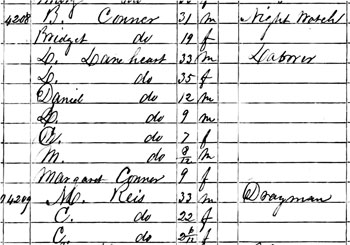 4208 B. Conner 31 m Night Watch
Bridget do 19 f
L. Laneheart 33 m Laborer
L. do 35 f
Daniel do 12 m
L. do 9 m
C. do 7 f
M. do 8/12 m
Margaret Conner 9 f
4209 M. Reis 33 m Drayman
C. do 22 f
C. do f